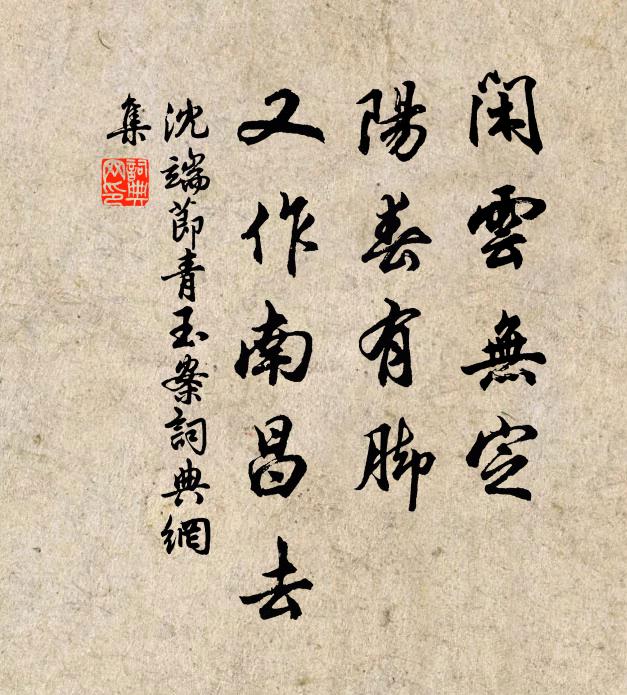 閑雲無定
陽春有腳
又作南昌去
沈端節青玉案詞典網
集
詞典
網印